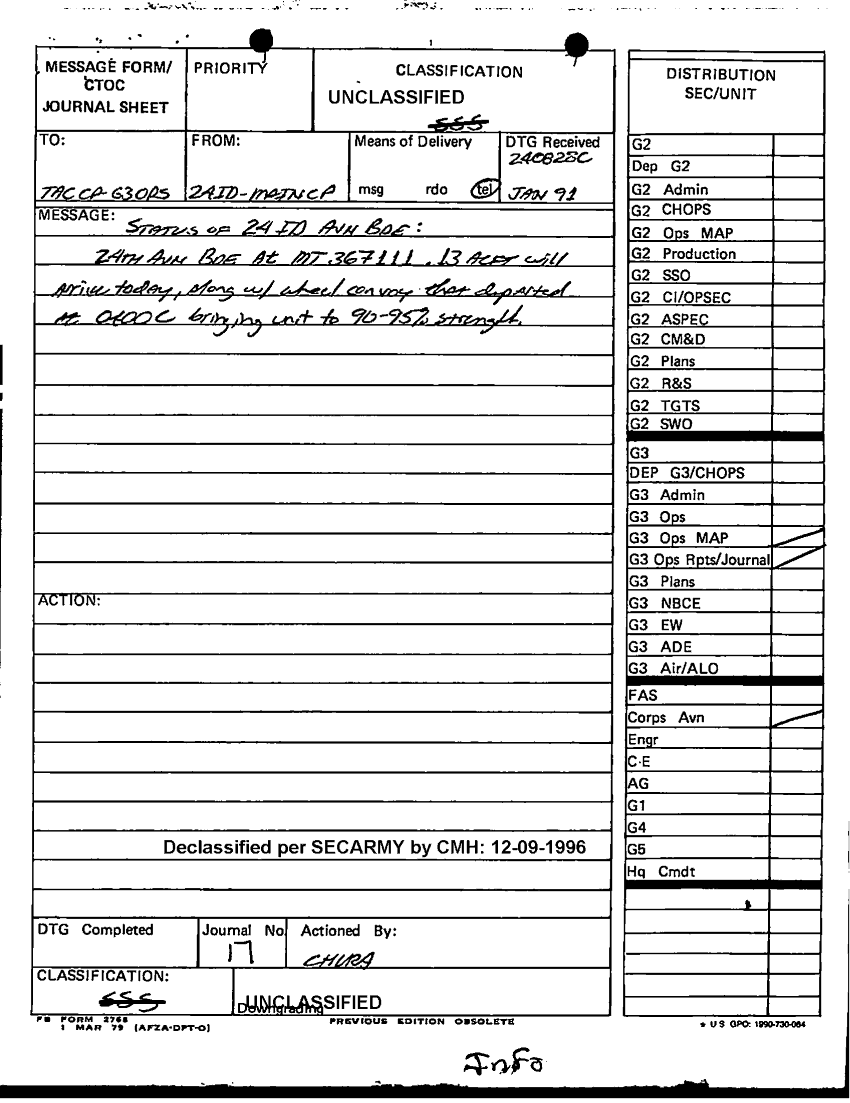 MESSAGE FORM/
CTOC
JOURNAL SHEET
PRIORITY
CLASSIFICATION
UNCLASSIFIED
SSS
TO:
TACCP G3OPS
FROM:
24ID-MAINCP
Means of Delivery
msg rdo tel
DTG Received
240828C
JAN 91
MESSAGE:
STATUS OF 24 ID AVN BDE:
24TH AVN BDE At MT 367111. 13 ACFT will
arrive today, along w/ wheel convoy that departed
At 0400C bringing unit to 90-95% strength.
ACTION:
Declassified per SECARMY by CMH: 12-09-1996
DTG Completed
Journal No
17
Actioned By:
CHURA
CLASSIFICATION:
SSS
UNCLASSIFIED
Downgrading
FB FORM 2768
1 MAR 79 (AFZA-DPT-O)
PREVIOUS EDITION OBSOLETE
DISTRIBUTION
SEC/UNIT
G2
Dep G2
G2 Admin
G2 CHOPS
G2 Ops MAP
G2 Production
G2 SSO
G2 CI/OPSEC
G2 ASPEC
G2 CM&D
G2 Plans
G2 R&S
G2 TGTS
G2 SWO
G3
DEP G3/CHOPS
G3 Admin
G3 Ops
G3 Ops MAP
G3 Ops Rpts/Journal
G3 Plans
G3 NBCE
G3 EW
G3 ADE
G3 Air/ALO
FAS
Corps Avn
Engr
C-E
AG
G1
G4
G5
Hq Cmdt
* U S GPO: 1990-730-064
Info